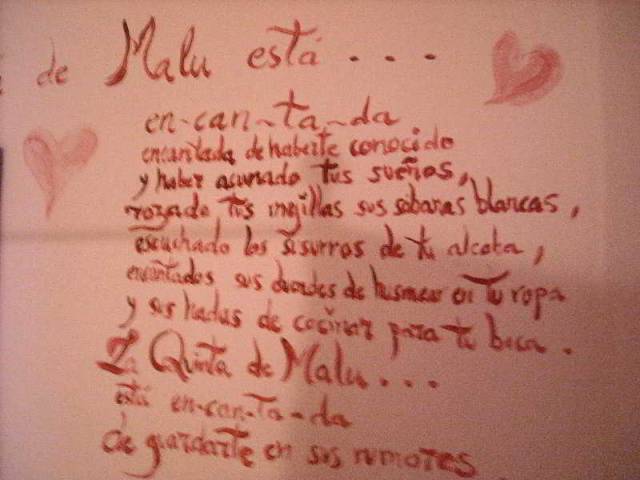 de Malu está . . .
en-can-ta-da
encantada de haberte conocido
y haber acunado tus sueños,
rozado tus mejillas sus sabanas blancas,
escuchado los sisurros de tu alcoba,
encantados sus duendes de husmear en tu ropa
y sus hadas de cocinar para tu boca.
La Quinta de Malu...
está en-can-ta-da
de guardarte en sus rumores